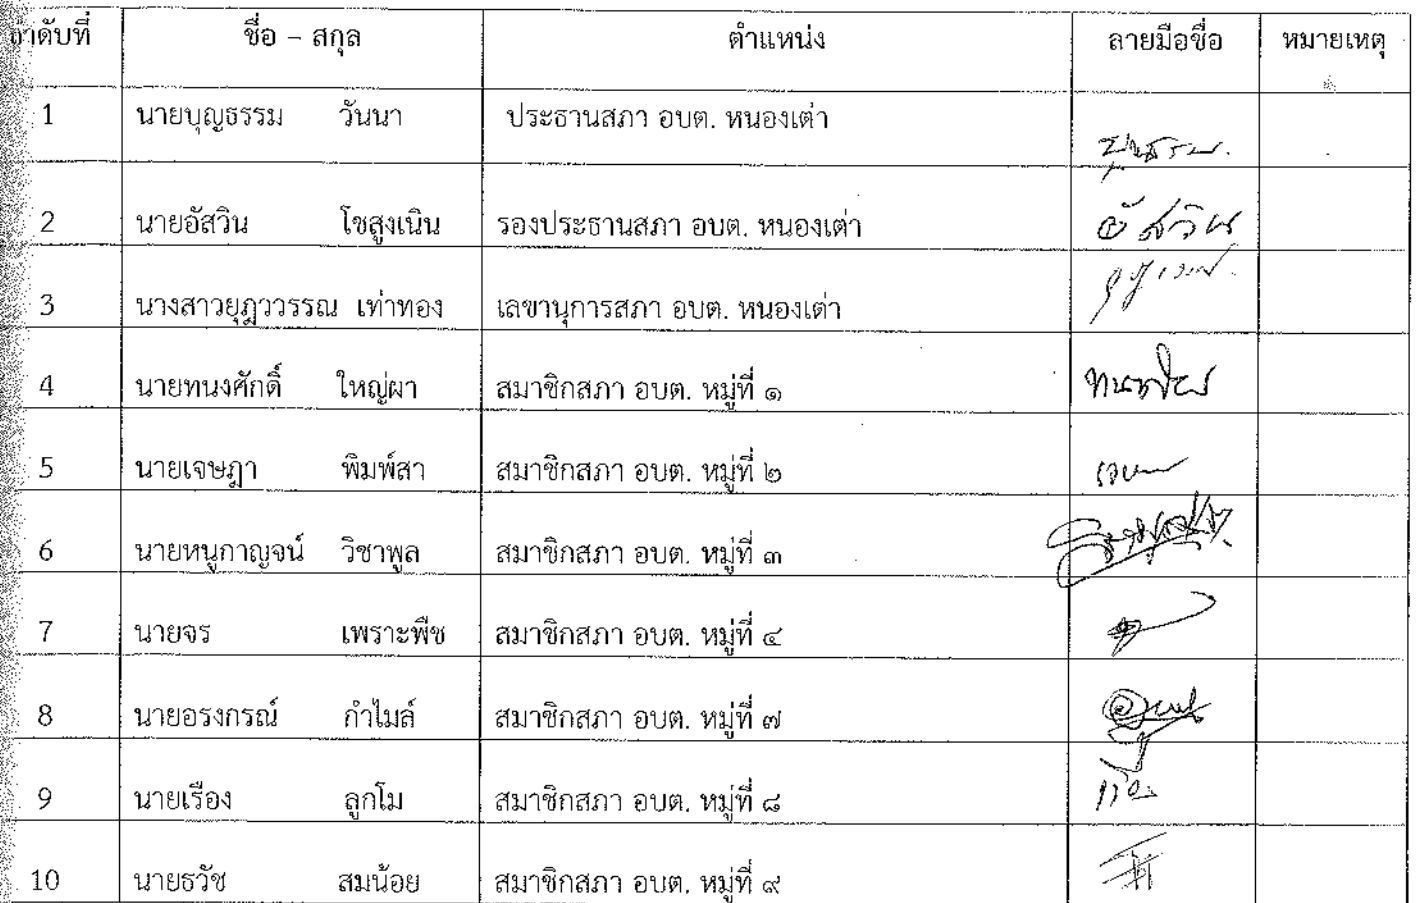 ลำดับที่ ชื่อ – สกุล ตำแหน่ง ลายมือชื่อ หมายเหตุ
1 นายบุญธรรม วันนา ประธานสภา อบต. หนองเต่า บุญธรรม
2 นายอัสวิน โชสูงเนิน รองประธานสภา อบต. หนองเต่า อัสวิน
3 นางสาวยุฎาววรรณ เท่าทอง เลขานุการสภา อบต. หนองเต่า
4 นายทนงศักดิ์ ใหญ่ผา สมาชิกสภา อบต. หมู่ที่ ๑
5 นายเจษฎา พิมพ์สา สมาชิกสภา อบต. หมู่ที่ ๒
6 นายหนูกาญจน์ วิชาพูล สมาชิกสภา อบต. หมู่ที่ ๓
7 นายจร เพราะพืช สมาชิกสภา อบต. หมู่ที่ ๔
8 นายอรงกรณ์ กำไมล์ สมาชิกสภา อบต. หมู่ที่ ๗
9 นายเรือง ลูกโม สมาชิกสภา อบต. หมู่ที่ ๘
10 นายธวัช สมน้อย สมาชิกสภา อบต. หมู่ที่ ๙